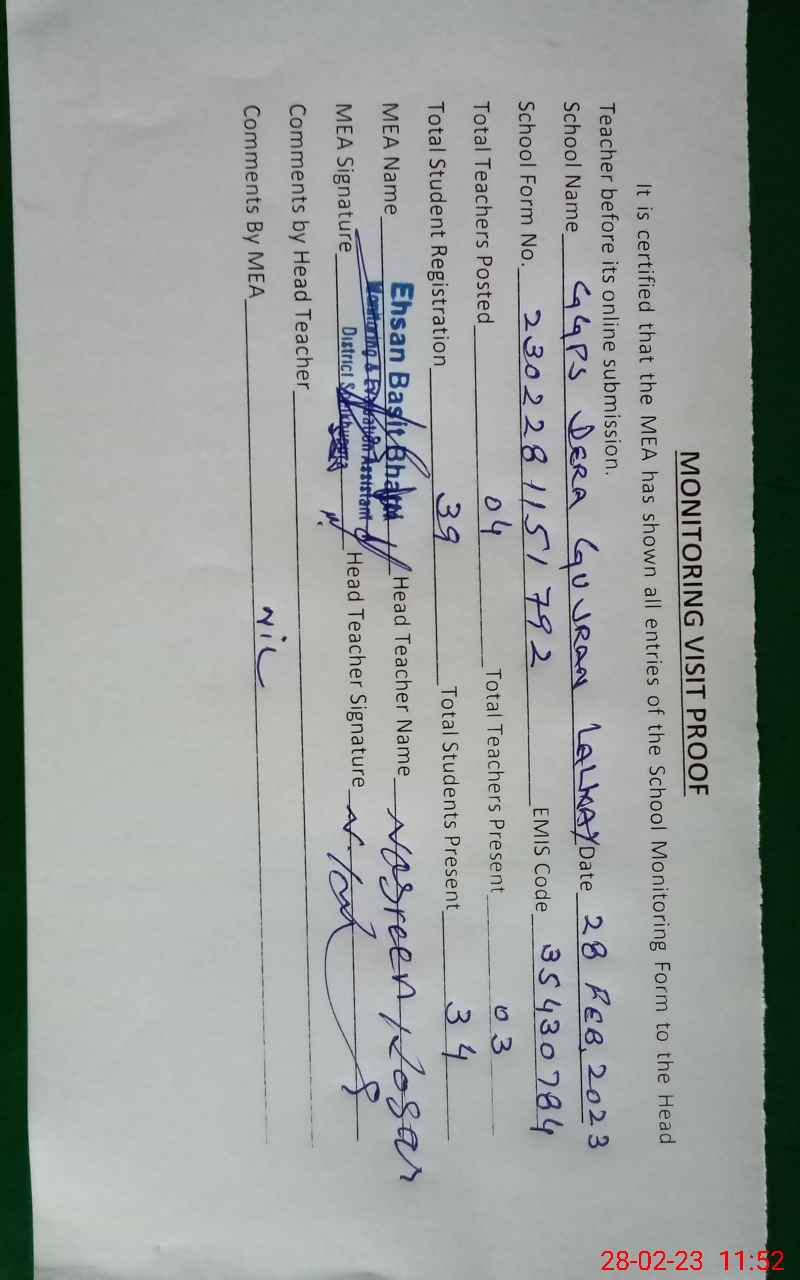 MONITORING VISIT PROOF
It is certified that the MEA has shown all entries of the School Monitoring Form to the Head
Teacher before its online submission.
School Name GGPS DERA GUJRAN LALKAY Date 28 FEB, 2023
School Form No. 2302281151792 EMIS Code 35430784
Total Teachers Posted 04 Total Teachers Present 03
Total Student Registration 39 Total Students Present 34
MEA Name Ehsan Basit Bhatti Head Teacher Name Nasreen Kosar
Monitoring & Evaluation Assistant
MEA Signature District Head Teacher Signature
Comments by Head Teacher
Comments By MEA Nil
28-02-23 11:52